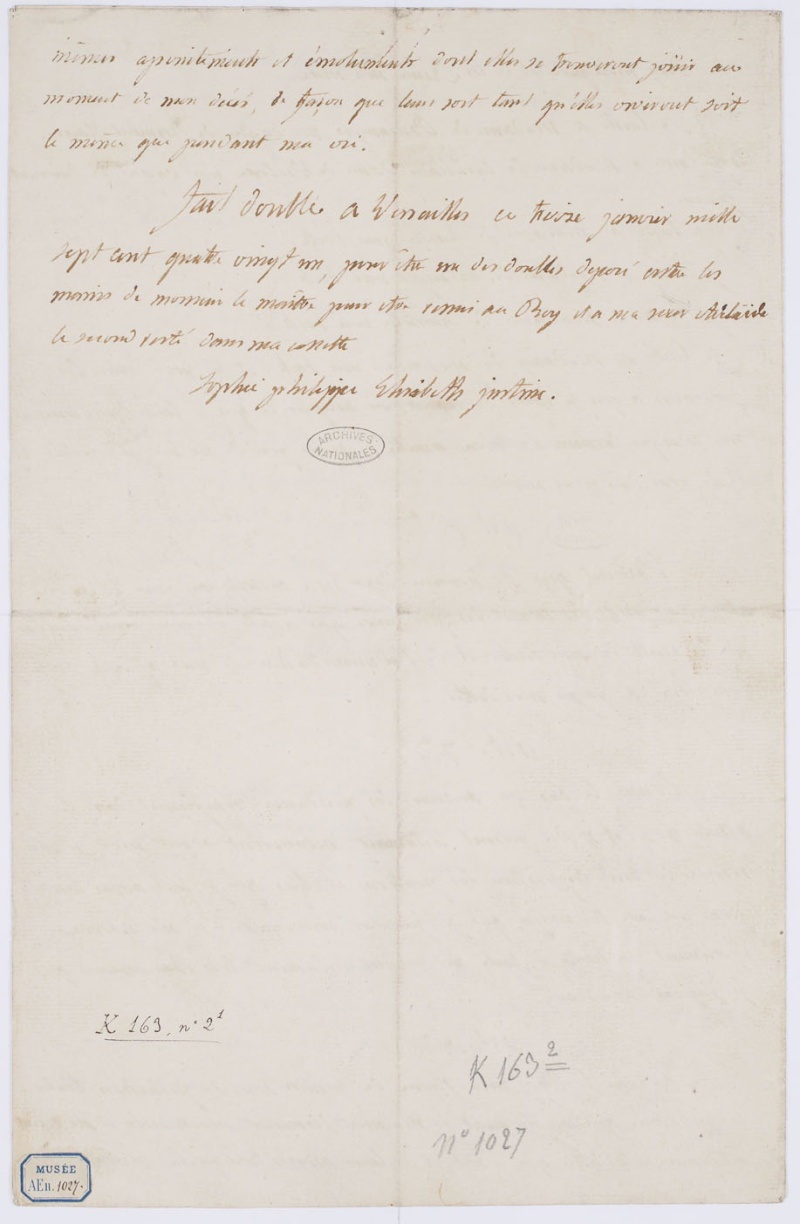 mêmes apointements et émoluments dont elles se trouveront joüir au
moment de mon décès, de façon que leur sort tant qu'elles vivront soit
le même que pendant ma vie.
fait double a Versailles ce treize janvier mille
sept cent quatre vingt un, pour être un des doubles deposé entre les
mains de monsieur le pour etre remis au Roy et a ma sœur Adelaide
le second resté dans ma cassette
Sophie philippe Elisabeth justine.
ARCHIVES
NATIONALES
K 163, n° 2¹
K 163²
n° 1027
MUSÉE
AEn. 1027.